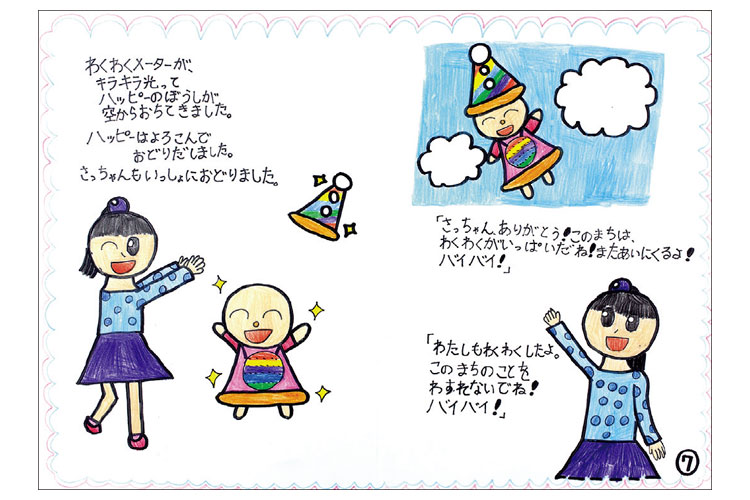 わくわくメーターが、
キラキラ光って
ハッピーのぼうしが
空からおちてきました。
ハッピーはよろこんで
おどりだしました。
さっちゃんもいっしょにおどりました。
「さっちゃん、ありがとう!このまちは、
わくわくがいっぱいだね!またあいにくるよ!
バイバイ!」
「わたしもわくわくしたよ。
このまちのことを
わすれないでね!
バイバイ!」
7